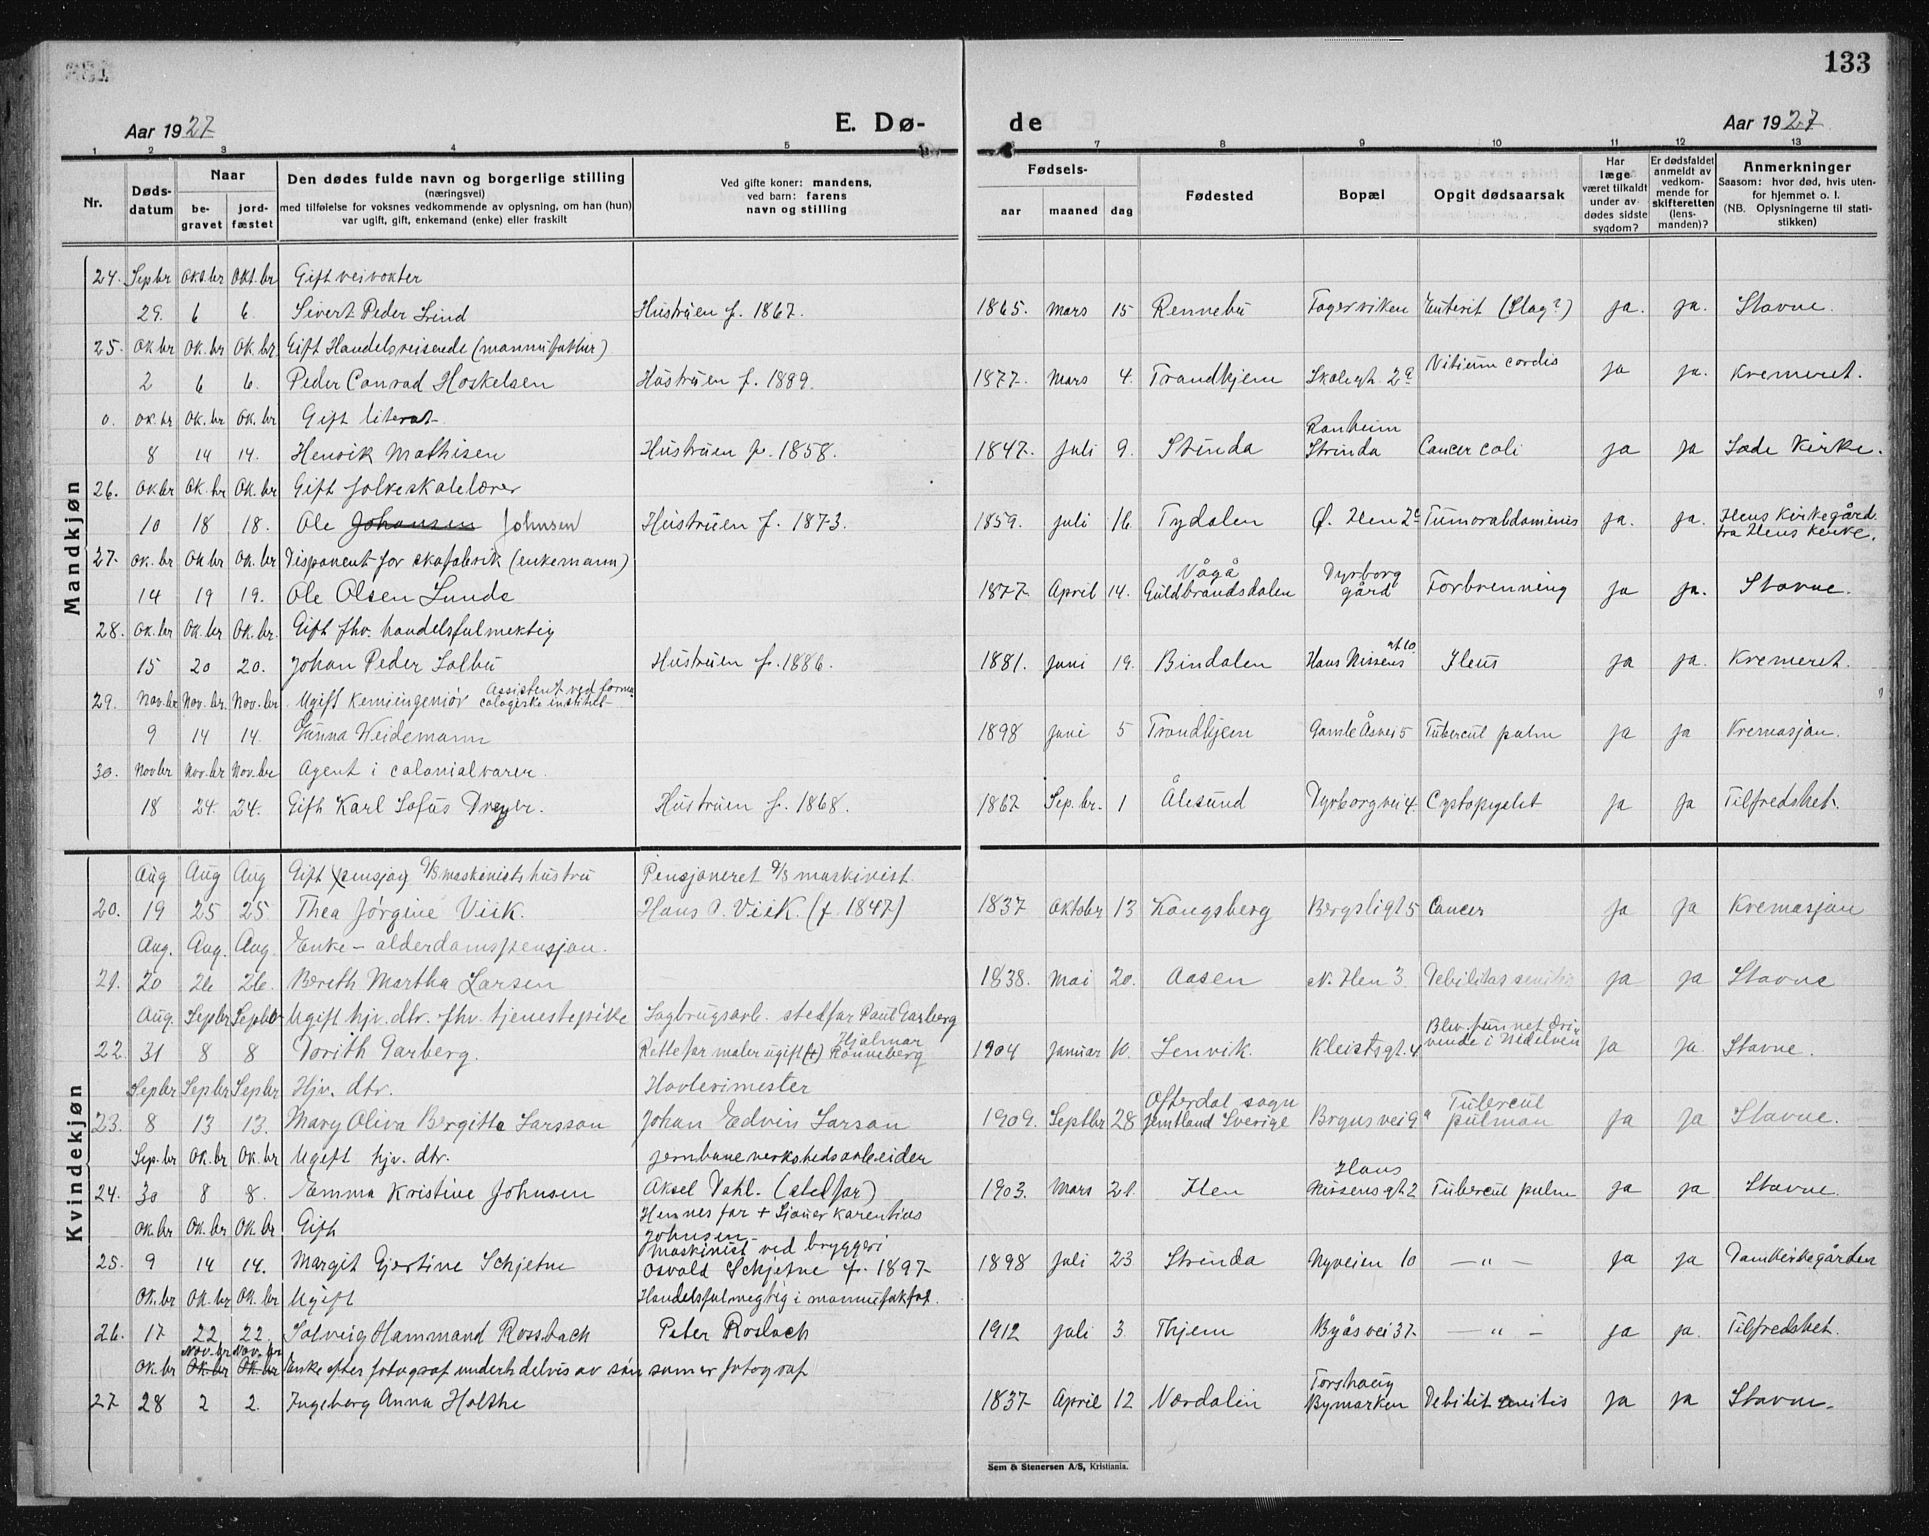 133
Aar 1927 E. Dø- de Aar 1927
1 2 3 4 5 6 7 8 9 10 11 12 13
Nr. Døds-datum Naar be-gravet jord-fæstet Den dødes fulde navn og borgerlige stilling (næringsvei) med tilføielse for voksnes vedkommende av oplysning, om han (hun) var ugift, gift, enkemand (enke) eller fraskilt Ved gifte koner: mandens, ved barn: farens navn og stilling Fødsels- aar maaned dag Fødested Bopæl Opgit dødsaarsak Har læge været tilkaldt under av-dødes sidste sygdom? Er dødsfaldet anmeldt av vedkom-mende for skifteretten (lens-manden)? Anmerkninger Saasom: hvor død, hvis uten-for hjemmet o. l. (NB. Oplysningerne til stati-stikken)
Mandkjøn
24. Sepbr Okt.br Okt.br Gift veivokter
29. 6 6. Sivert Peder Lrind Hustruen f. 1867. 1865. Mars 15 Rennebu Fagerviken Enterit (Slag?) ja. ja. Stavne.
25. Ok.br Ok.br Ok.br Gift Handelsreisende (mannufaktur)
2 6 6. Peder Conrad Hoskelsen Hustruen f. 1889. 1877. Mars 4. Trondhjem Skolegt. 2a Vitium cordis ja ja. Kremeret.
0. Ok.br Ok.br Ok.br Gift literat
Ranheim
8 14 14. Henrik Mathisen Hustruen f. 1858. 1847. Juli 9. Strinda Strinda Cancer coli ja ja Lade Kirke.
26. Ok.br Ok.br Ok.br Gift folkeskolelærer
10 18 18. Ole Johansen Johnsen Hustruen f. 1873. 1859. Juli 16. Tydalen Ø. Ilen 2c Tumor abdominis ja. ja. Ilens Kirkegård. fra Ilens Kirke.
27. Ok.br Ok.br Ok.br Disponent for skofabrik (enkemann)
14 19 19. Ole Olsen Lunde 1877. April 14. Vågå Guldbrandsdalen Dyrborg gård Forbrenning ja ja. Stavne.
28. Ok.br Ok.br Ok.br. Gift fhv. handelsfulmektig
15 20 20. Johan Peder Solbu Hustruen f. 1886. 1881. Juni 19. Bindalen Hans Nissens gt 10 Ileus ja ja. Kremeret.
29. Nov.br Nov.br. Nov.br Ugift Kemiingeniør Assistent ved farma cologiske institut
9 14 14. Gunna Weidemann 1898 Juni 5 Trondhjem Gamle Åsvei 5 Tubercul pulm ja ja Kremasjon.
30. Novbr Nov.br Nov.br Agent i colonialvarer.
18 24. 24. Gift Karl Sofus Dreyer. Hustruen f. 1868. 1867 Sep.br. 1 Ålesund Dyrborgvei 4. Cystopyelit ja ja Tilfredshet.
Kvindekjøn
Aug Aug Aug Gift (pensjon) D/S maskinists hustru Pensjoneret D/S maskinist.
20. 19 25 25 Thea Jørgine Viik. Hans O. Viik (f. 1847) 1837 Oktober 13 Kongsberg Bergsligt 5 Cancer ja ja Kremasjon
Aug. Aug. Aug. Enke – alderdomspensjon.
21. 20 26 26. Bereth Martha Larsen 1838. Mai 20. Aasen N. Ilen 3 Debilitas senilis ja ja Stavne
Aug. Sepbr Sepbr Ugift hjv. dtr. fhv. tjenestepike Sagbrugsarb. stedfar Paul Garberg
22. 31 8 8 Dorith Garberg. Rette far maler ugift (+) Hjalmar Rønneberg 1904 Januar 10. Lenvik. Kleistsgt. 4 Blev funnet drivende i Nidelven ja ja. Stavne.
Sepbr Sepbr Sepbr Hjv. dtr. Høvlerimester
23. 8 13 13. Mary Oliva Bergitte Larsson Johan Edvin Larson 1909. Septbr 28 Ofterdal sogn Jemtland Sverige Bøgnsvei 9a Tubercul pulmon ja ja Stavne.
Sep.br Ok.br Ok.br Ugift hjv. dtr. jernbaneverkstedsarbeider
24. 30 8 8. Emma Kristine Johnsen Aksel Dahl. (stedfar) 1903. Mars 21. Ilen Hans Nissens gt. 2 Tubercul pulm ja ja Stavne.
Hennes far + Sjauer Karentius Johnsen
Ok.br Ok.br Ok.br Gift Maskinist ved bryggeri
25. 9 14 14. Margit Gjertine Schjetne Osvald Schjetne f. 1897 1898 Juli 23 Strinda Nyveien 10 — " — ja ja Domkirkegården
Ok.br Ok.br Ok.br Ugift Handelsfulmegtig i mannufakfor.
26. 17 22 22. Solveig Hammand Rossbach Peter Rosbach 1912 Juli 3. Thjem Byåsvei 37 — " — ja ja. Tilfredshet.
Nov.br Nov.br
Ok.br Ok.br Ok.br Enke efter fotograf underh delvis av søn som er fotograf
27 28 2 2. Ingeborg Anna Holthe 1837 April 12 Værdalen Torshaug Bymarken Debilit senilis ja ja Stavne.
Sem & Stenersen A/S, Kristiania.